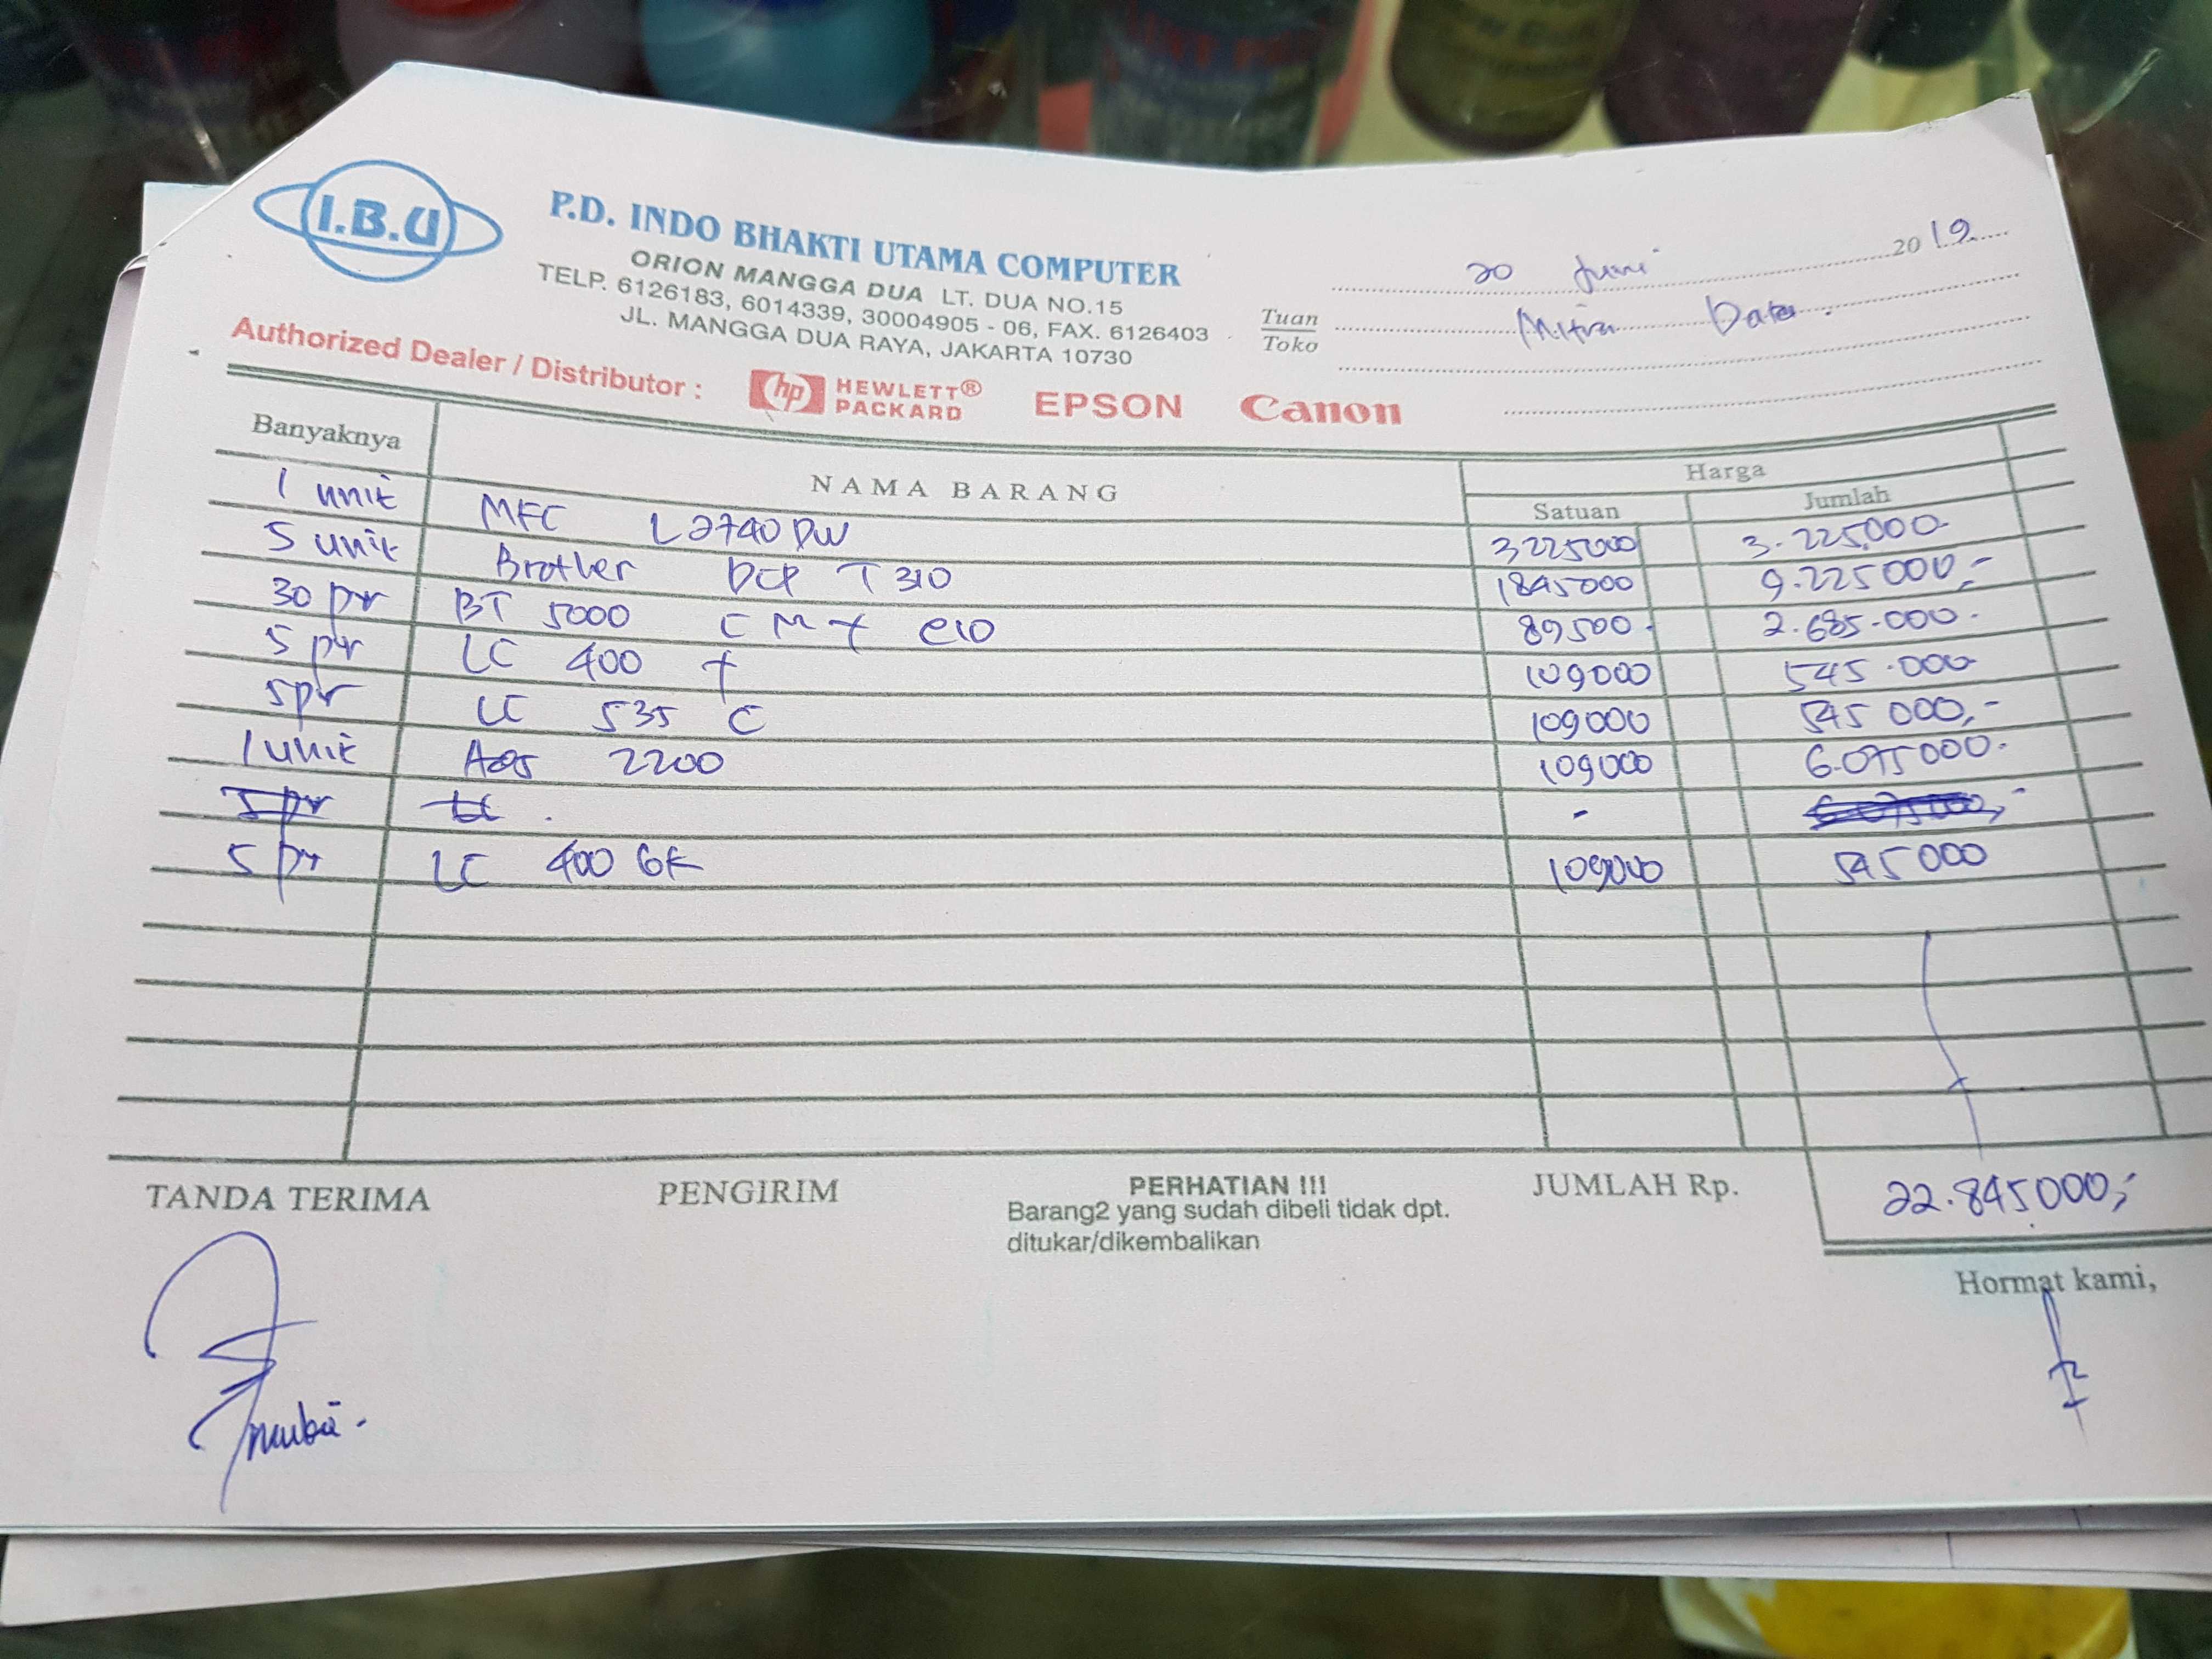 I.B.U
P.D. INDO BHAKTI UTAMA COMPUTER
ORION MANGGA DUA LT. DUA NO.15
TELP. 6126183, 6014339, 30004905 - 06, FAX. 6126403
JL. MANGGA DUA RAYA, JAKARTA 10730
20 Juni 2019
Tuan
Toko
Mitra Data
Authorized Dealer / Distributor : hp HEWLETT® PACKARD EPSON Canon
Banyaknya NAMA BARANG Harga
Satuan Jumlah
1 unit MFC L2740 DW 3225000 3.225,000
5 unit Brother DCP T310 1845000 9.225000,-
30 pr BT 5000 C M Y 89500 2.685.000
5 pr LC 400 Y 109000 545.000
5 pr LC 535 C 109000 545 000,-
1 unit 2200 109000 6.075000
5 pr LC . - 6.075000,-
5 pr LC 400 BK 109000 545000
TANDA TERIMA PENGIRIM PERHATIAN !!! JUMLAH Rp. 22.845000,-
Barang2 yang sudah dibeli tidak dpt.
ditukar/dikembalikan
Hormat kami,